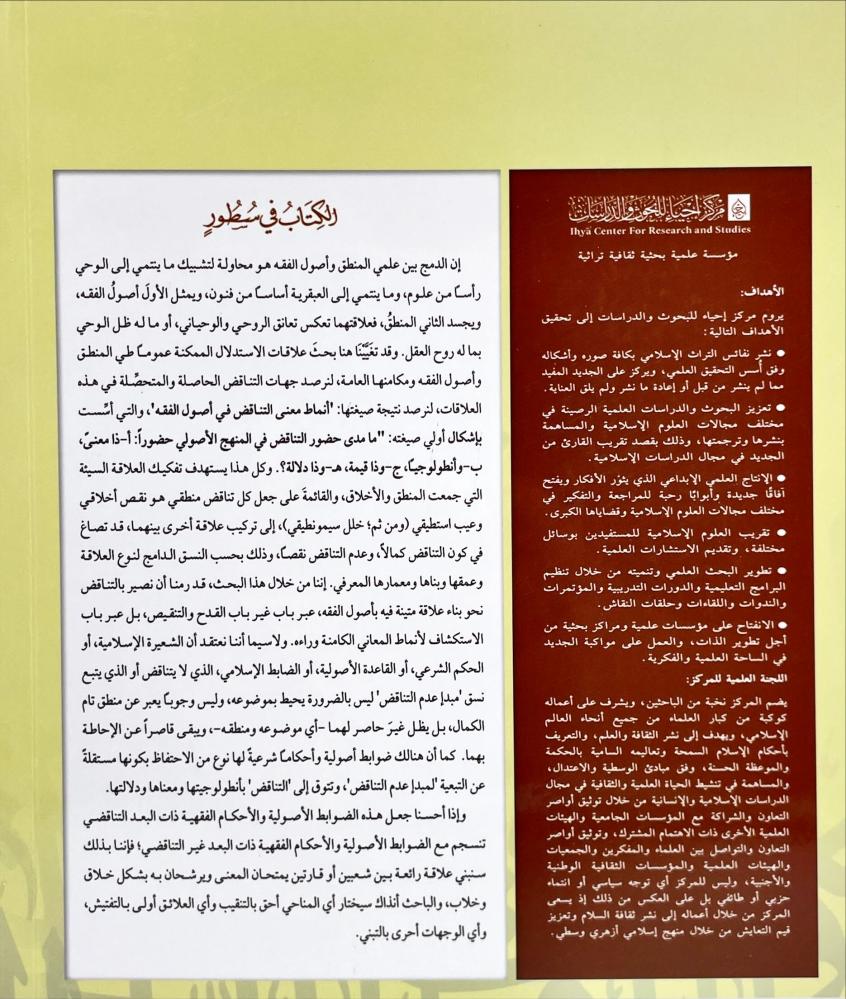 مركز إحياء للبحوث والدراسات
Ihyā Center For Research and Studies
مؤسسة علمية بحثية ثقافية تراثية
الأهداف:
يروم مركز إحياء للبحوث والدراسات إلى تحقيق
الأهداف التالية:
● نشر نفائس التراث الإسلامي بكافة صوره وأشكاله
وفق أسس التحقيق العلمي، ويركز على الجديد المفيد
مما لم ينشر من قبل أو إعادة ما نشر ولم يلق العناية.
● تعزيز البحوث والدراسات العلمية الرصينة في
مختلف مجالات العلوم الإسلامية والمساهمة
بنشرها وترجمتها، وذلك بقصد تقريب القارئ من
الجديد في مجال الدراسات الإسلامية.
● الإنتاج العلمي الإبداعي الذي يثوّر الأفكار ويفتح
آفاقًا جديدة وأبوابًا رحبة للمراجعة والتفكير في
مختلف مجالات العلوم الإسلامية وقضاياها الكبرى.
● تقريب العلوم الإسلامية للمستفيدين بوسائل
مختلفة، وتقديم الاستشارات العلمية.
● تطوير البحث العلمي وتنميته من خلال تنظيم
البرامج التعليمية والدورات التدريبية والمؤتمرات
والندوات واللقاءات وحلقات النقاش.
● الانفتاح على مؤسسات علمية ومراكز بحثية من
أجل تطوير الذات، والعمل على مواكبة الجديد
في الساحة العلمية والفكرية.
اللجنة العلمية للمركز:
يضم المركز نخبة من الباحثين، ويشرف على أعماله
كوكبة من كبار العلماء من جميع أنحاء العالم
الإسلامي، ويهدف إلى نشر الثقافة والعلم، والتعريف
بأحكام الإسلام السمحة وتعاليمه السامية بالحكمة
والموعظة الحسنة، وفق مبادئ الوسطية والاعتدال،
والمساهمة في تنشيط الحياة العلمية والثقافية في مجال
الدراسات الإسلامية والإنسانية من خلال توثيق أواصر
التعاون والشراكة مع المؤسسات الجامعية والهيئات
العلمية الأخرى ذات الاهتمام المشترك، وتوثيق أواصر
التعاون والتواصل بين العلماء والمفكرين والجمعيات
والهيئات العلمية والمؤسسات الثقافية الوطنية
والأجنبية، وليس للمركز أي توجه سياسي أو انتماء
حزبي أو طائفي بل على العكس من ذلك إذ يسعى
المركز من خلال أعماله إلى نشر ثقافة السلام وتعزيز
قيم التعايش من خلال منهج إسلامي أزهري وسطي.
الكِتَابُ في سُطُورٍ
إن الدمج بين علمي المنطق وأصول الفقه هو محاولة لتشبيك ما ينتمي إلى الوحي
رأسـا من علوم، وما ينتمي إلى العبقرية أساسـا من فنون، ويمثل الأولَ أصولُ الفقه،
ويجسد الثاني المنطقُ، فعلاقتهما تعكس تعانق الروحي والوحياني، أو ما له ظل الوحي
بما له روح العقل. وقد تغَيَّيْنَا هنا بحثَ علاقات الاستدلال الممكنة عموما طي المنطق
وأصول الفقه ومكامنها العامة، لنرصد جهات التناقض الحاصلة والمتحصِّلة في هذه
العلاقات، لنرصد نتيجة صيغتها: 'أنماط معنى التناقض في أصول الفقه'، والتي أسِّست
بإشكال أولي صيغته: "ما مدى حضور التناقض في المنهج الأصولي حضوراً: أ-ذا معنىً،
ب-وأنطولوجياً، ج-وذا قيمة، هـ-وذا دلالة؟. وكل هذا يستهدف تفكيك العلاقة السيئة
التي جمعت المنطق والأخلاق، والقائمةَ على جعل كل تناقض منطقي هو نقص أخلاقي
وعيب استطيقي (ومن ثم؛ خلل سيمونطيقي)، إلى تركيب علاقة أخرى بينهما، قد تصاغ
في كون التناقض كمالاً، وعدم التناقض نقصاً، وذلك بحسب النسق الدامج لنوع العلاقة
وعمقها وبناها ومعمارها المعرفي. إننا من خلال هذا البحث، قد رمنا أن نصير بالتناقض
نحو بناء علاقة متينة فيه بأصول الفقه، عبر باب غير باب القدح والتنقيص، بل عبر باب
الاستكشاف لأنماط المعاني الكامنة وراءه. ولاسيما أننا نعتقد أن الشعيرة الإسلامية، أو
الحكم الشرعي، أو القاعدة الأصولية، أو الضابط الإسلامي، الذي لا يتناقض أو الذي يتبع
نسق 'مبدإ عدم التناقض' ليس بالضرورة يحيط بموضوعه، وليس وجوباً يعبر عن منطق تام
الكمال، بل يظل غيرَ حاصر لهما -أي موضوعه ومنطقه-، ويبقى قاصراً عن الإحاطة
بهما. كما أن هنالك ضوابط أصولية وأحكاماً شرعيةً لها نوع من الاحتفاظ بكونها مستقلةً
عن التبعية 'لمبدإ عدم التناقض'، وتتوق إلى 'التناقض' بأنطولوجيتها ومعناها ودلالتها.
وإذا أحسنا جعل هذه الضوابط الأصولية والأحكام الفقهية ذات البعد التناقضي
تنسجم مع الضوابط الأصولية والأحكام الفقهية ذات البعد غير التناقضي؛ فإننا بذلك
سنبني علاقة رائعة بين شعبين أو قارتين يمتحان المعنى ويرشحان به بشكل خلاق
وخلاب، والباحث آنذاك سيختار أي المناحي أحق بالتنقيب وأي العلائق أولى بالتفتيش،
وأي الوجهات أحرى بالتبني.